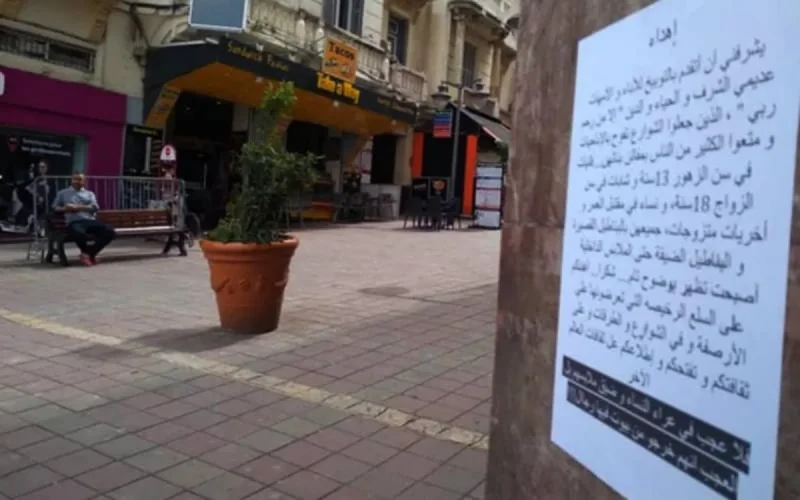 Sandwich Paninis
Tacos
Take a Way
إهداء
يشرفني ان اتقدم بالتوبيخ للأباء و الامهات
عديمي الشرف و الحياء و الدين " إلا من رحم
ربي " ، الذين جعلوا الشوارع تفوح بالاشهيات
و متعوا الكثير من الناس بمفاتن بناتهن.. فتيات
في سن الزهور 13سنة و شابات في سن
الزواج 18سنة، و نساء في مقتبل العمر و
أخريات متزوجات، جميعهن بالبناطيل القصيرة
و البناطيل الضيقة حتى الملابس الداخلية
أصبحت تظهر بوضوح تام... شكرا.. لهتكم
على السلع الرخيصه التي تعرضونها على
الأرصفة و في الشوارع و الطرقات و على
ثقافتكم و تفتحكم و إطلاعكم عل ثقافات العالم
الأخر
فلا عجب في عراء النساء و ضيق ملابسهم بل
العجب انهم خرجو من بيوت فيها رجال!!!